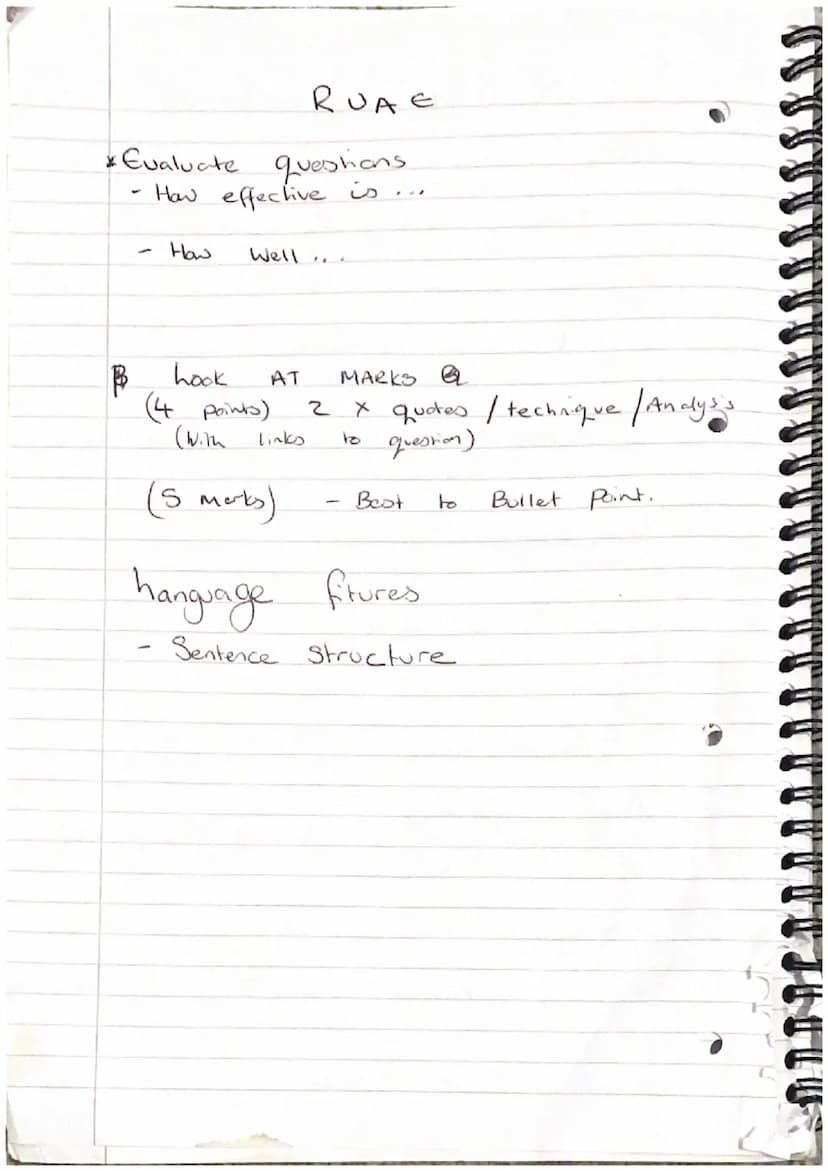 RUAE
* Evaluate questions
- How effective is ...
- How well ...
Look AT MARKS
(4 points) 2 x quotes / technique / Analysis
(With links to question)
(5 marks) - Best to Bullet Point.
Language fitures
- Sentence structure